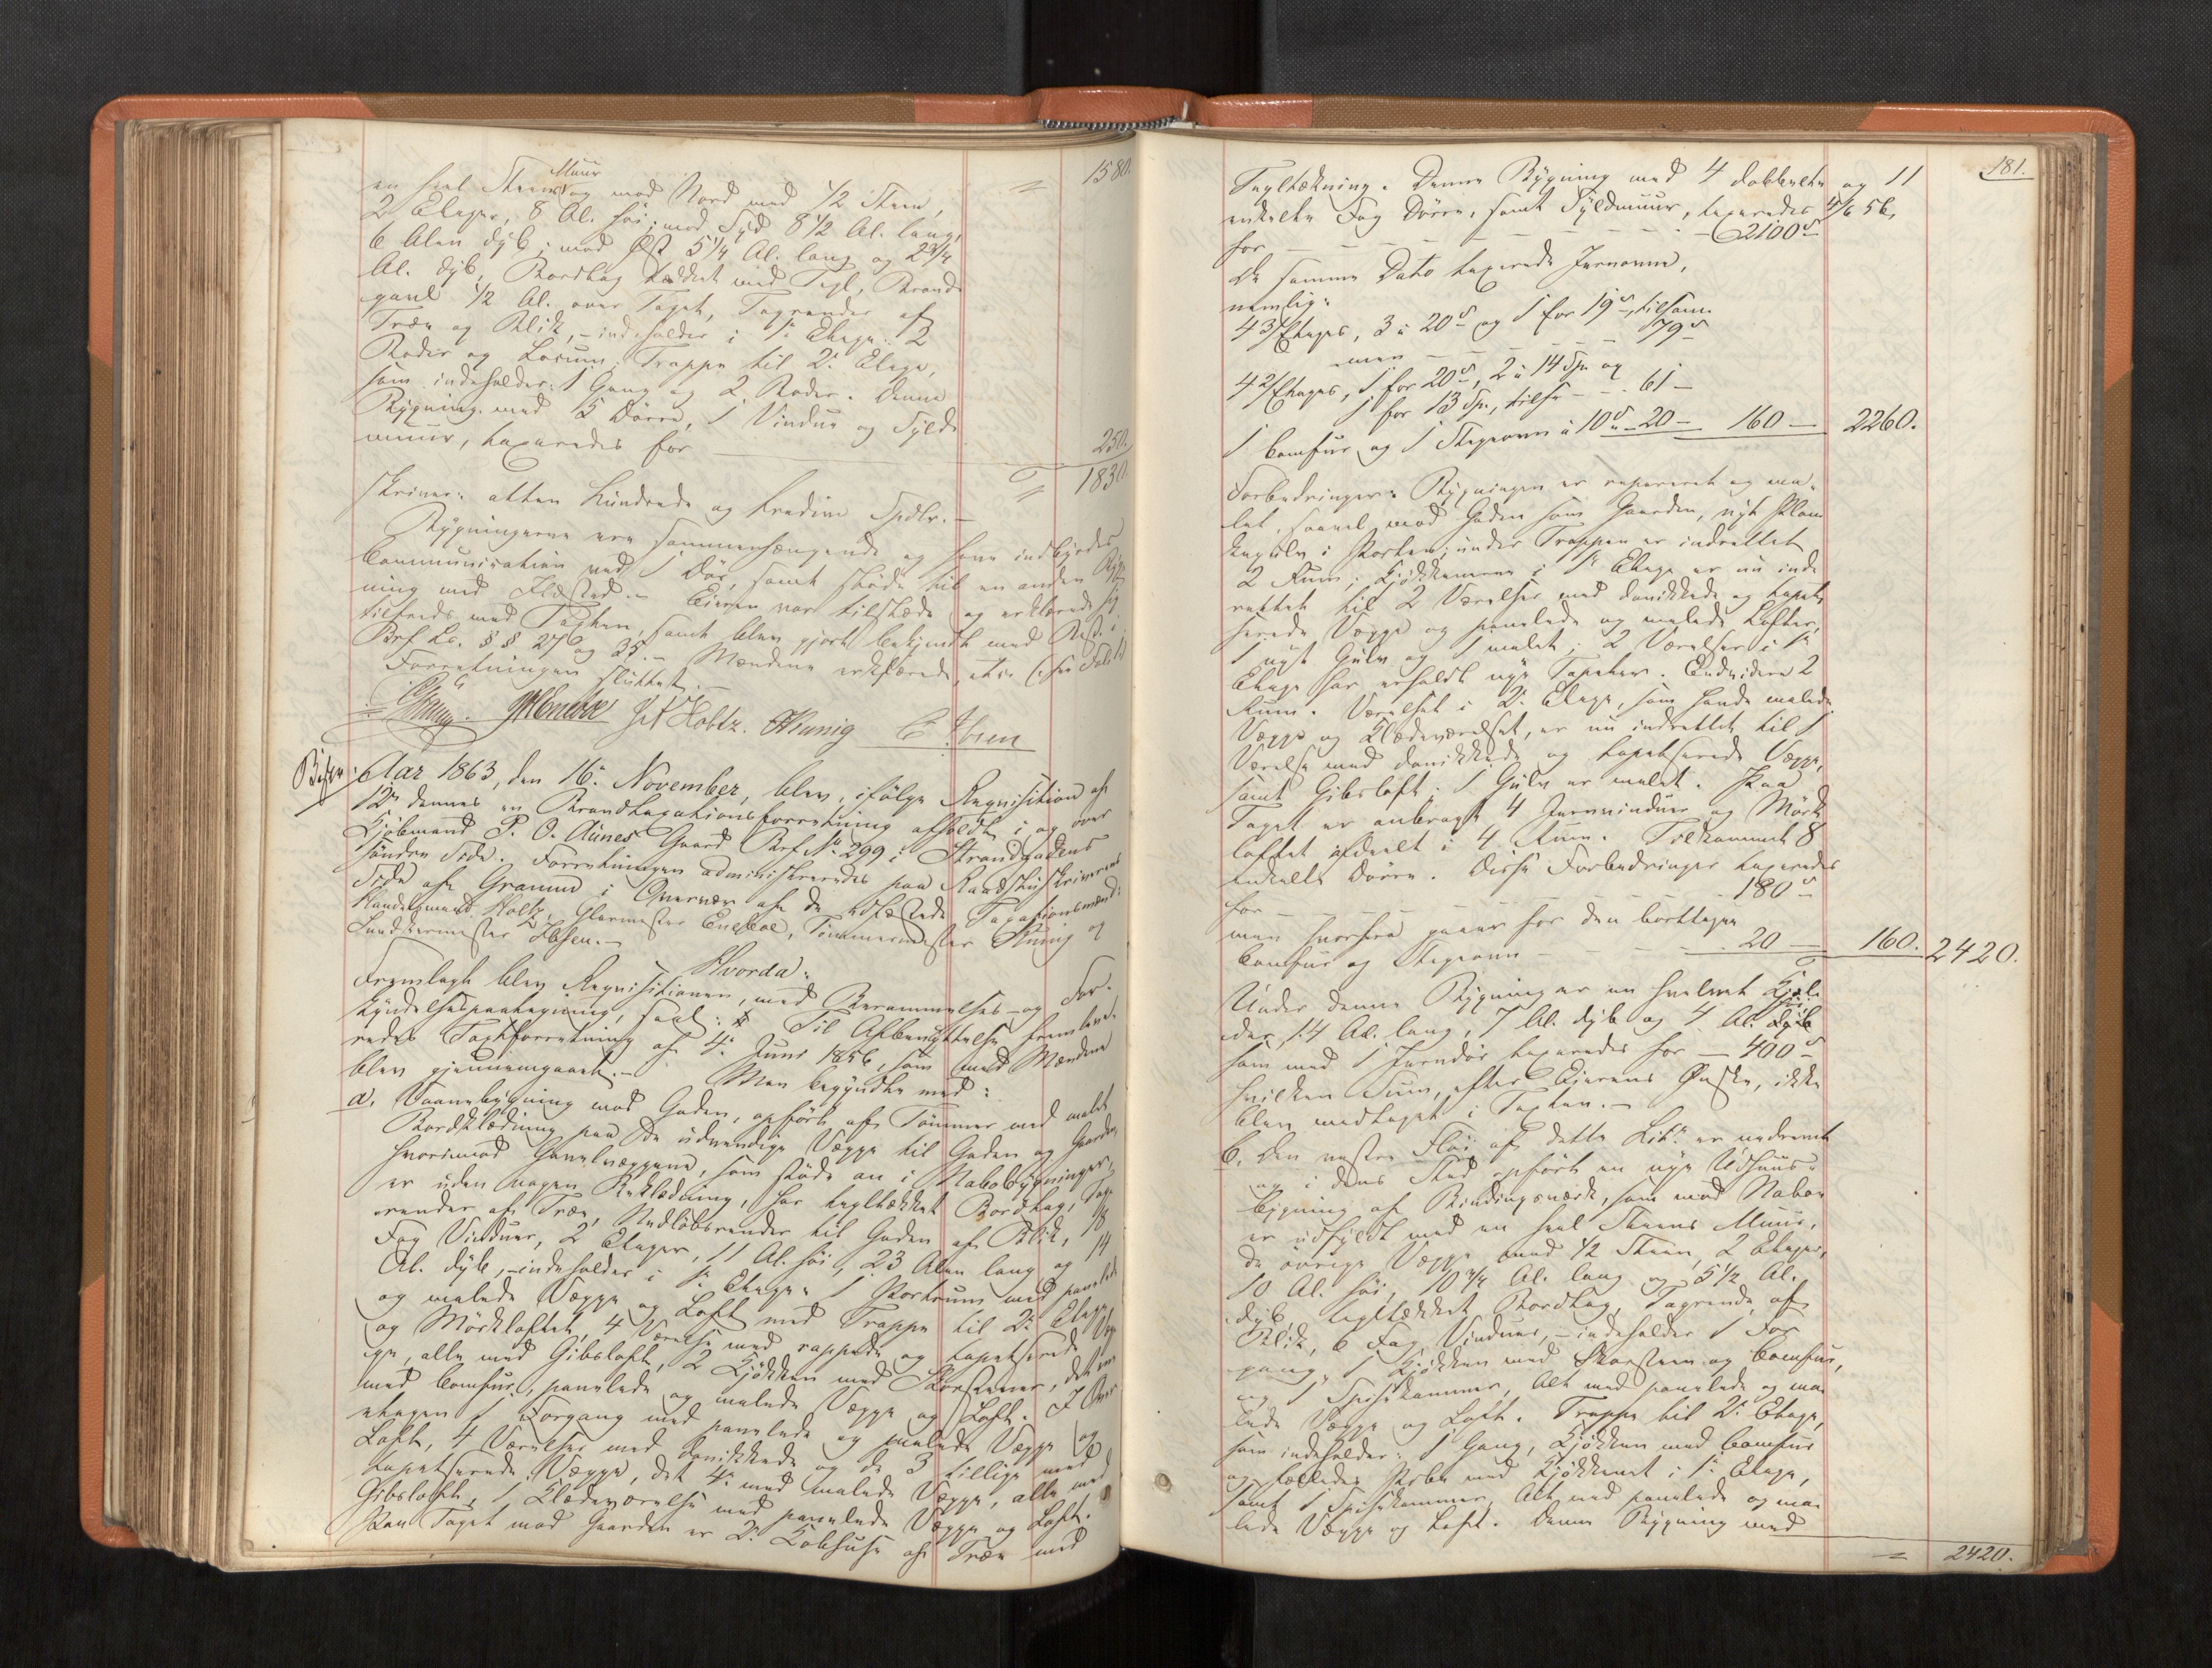 1580.
en heel Steens Muur og mod Nord med 1/2 Steen,
2 Etager, 8 Al. høi; mod Syd 8 1/2 Al. lang,
6 Alen dyb; mod Øst 5 1/4 Al. lang og 2 3/4
Al. dyb, Bordtag tækket med Tegl, Brand-
gavl 1/2 Al. over Taget, Tagrender af
Træe og Blik, - indeholder i 1ste Etage: 2
Boder og Locum. Trappe til 2den Etage,
som indeholder: 1 Gang og 2 Boder. Denne
Bygning med 15 Dørre, 1 Vindue og Fyld-
muur, taxeredes for 250.
1830.
skriver: atten Hundrede og tredive Spdlr.-
Bygningerne ere sammenhængende og have indbyrdes
Communication ved 1 Dør, samt støde til en anden Byg-
ning med Ildsted. - Eieren var tilstede og erklærede sig
tilfreds med Taxten, samt blev gjort bekjendt med
Brf. Lo. §§ 27 og 35.- Mændene erklærede, etc.
Forretningen sluttet.-
Holtz. Kunig Ibsen
Aar 1863, den 16de November, blev, ifølge Requisition af
12te dennes en Brandtaxationsforretning afholdt i og over
Kjøbmand P. O. Aunes Gaard Brf. No 299 i Strandgadens
søndre Side. Forretningen administreredes paa Raadstueskriverens
Side af Gramm i Overvær af de edfæstede Taxationsmænd:
Handelsmand Holtz, Glarmester Eneboe, Tømmermester Kunig og
Ibsen.-
Hvorda:
Fremlagt blev Requisitionen, med Berammelses- og For-
kyndelsespaategning, Til Afbenyttelse fremlæg-
redes Taxtforretning af 4de Juni 1856, som med Mændene
blev gjennemgaaet.- Man begyndte med:
a. Vaanebygning mod Gaden, opført af Tømmer med malet
Bordklædning paa de udvendige Vægge til Gaden og Gaarden,
hvorimod Gavlvæggene, som støde an i Nabobygninger,
er uden nogen Beklædning, har tegltækket Bordtag, Tag-
render af Træe, Nedløbsrender til Gaden af Blik, 18
Fag Vinduer, 2 Etager, 11 Al. høi, 23 Alen lang og 14
Al. dyb, - indeholder i 1ste Etage: 1 Portrum med panelede
og malede Vægge og Loft med Trappe til 2den Etage
og Mørkloftet, 4 Værelser med rappede og tapetserede Væg-
ge, alle med Gibsloft, 2 Kjøkken med Skorstene, det ene
med Comfur, panelede og malede Vægge og Loft. I Over-
etagen 1 Forgang med panelede og malede Vægge og
Loft, 4 Værelser med donikkede og de 3 tillige med
tapetserede Vægge, det 4de med malede Vægge, alle med
Gibsloft, 1 Klædeværelse med panelede Vægge og Loft.
Paa Taget mod Gaarden er 2de Kobhuse af Træe med
181.
Tegltækning. Denne Bygning med 4 dobbelte og 11
enkelte Fag Dørre, samt Fyldmuur, taxeredes 4/6 56,
for 2100
De samme Dato taxerede Jernovne,
nemlig:
4 3/Etages, 3 à 20 og 1 for 19, tilsam-
men 79
4 2/Etages, 1 for 20, 2 à 14 Sp. og
1 for 13 Sp., tils. 61
1 Comfur og 1 Stegeovn à 10 - 20 - 160 - 2260.
Forbedringer: Bygningen er repareret og ma-
let, saavel mod Gaden som Gaarden, nyt Plan-
kegulv i Porten; under Trappen er indrettet
2 Rum; Kjøkkenerne i 1ste Etage er nu ind-
rettet til 2 Værelser med donikkede og tapet-
serede Vægge og panelede og malede Lofter,
1 nyt Gulv og 1 malet; 2 Værelser i 1ste
Etage har erholdt nye Tapeter. Endvidere 2
Rum. Værelset i 2den Etage, som havde malede
Vægge og Klædeværelset, er nu indrettet til 1
Værelse med donikkede og tapetserede Vægge,
samt Gibsloft; 1 Gulv er malet. Paa
Taget er anbragt 4 Jernvinduer og Mørk-
loftet afdeelt i 4 Rum. Tilkommet 8
enkelte Dørre. Disse Forbedringer taxeredes
for 180
men hvorfra gaaer for den borttagne
Comfur og Stegeovn 20 - 160. 2420.
Under denne Bygning er en hvelvet Kjæl-
der, 14 Al. lang, 7 Al. dyb og 4 Al. høi
som med 1 Jerndør taxeredes for - 400
hvilken Sum, efter Eierens Ønske, ikke
blev medtaget i Taxten.-
b. Den vestre Fløi af dette Litr. er nedrevet
og i dens Sted opført en nye Udhuus-
bygning af Bindingsværk, som mod Naboe
er udfyldt med en heel Steens Muur,
de øvrige Vægge med 1/2 Steen, 2 Etager,
10 Al. høi, 10 3/4 Al. lang og 5 1/2 Al.
dyb, tegltækket Bordtag, Tagrende af
Blik, 6 Fag Vinduer, - indeholder 1 For-
gang, 1 Kjøkken med Skorsteen og Comfur,
og 1 Spiskammer, Alt med panelede og ma-
lede Vægge og Loft. Trappe til 2den Etage,
som indeholder: 1 Gang, Kjøkken med Comfur
og fælleds Pibe med Kjøkkenet i 1ste Etage,
samt 1 Spiskammer, Alt med panelede og ma-
lede Vægge og Loft. Denne Bygning med
2420.